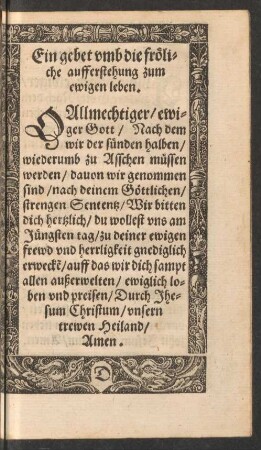 Ein gebet vmb die fröli-
che aufferstehung zum
ewigen leben.
O Allmechtiger / ewi-
ger Gott / Nach dem
wir der sünden halben /
wiederumb zu Asschen müssen
werden / dauon wir genommen
sind / nach deinem Göttlichen /
strengen Sententz / Wir bitten
dich hertzlich / du wollest vns am
Jüngsten tag / zu deiner ewigen
frewd vnd herrligkeit gnediglich
erweckē / auff das wir dich sampt
allen außerwelten / ewiglich lo-
ben vnd preisen / Durch Jhe-
sum Christum / vnsern
trewen Heiland /
Amen.
D